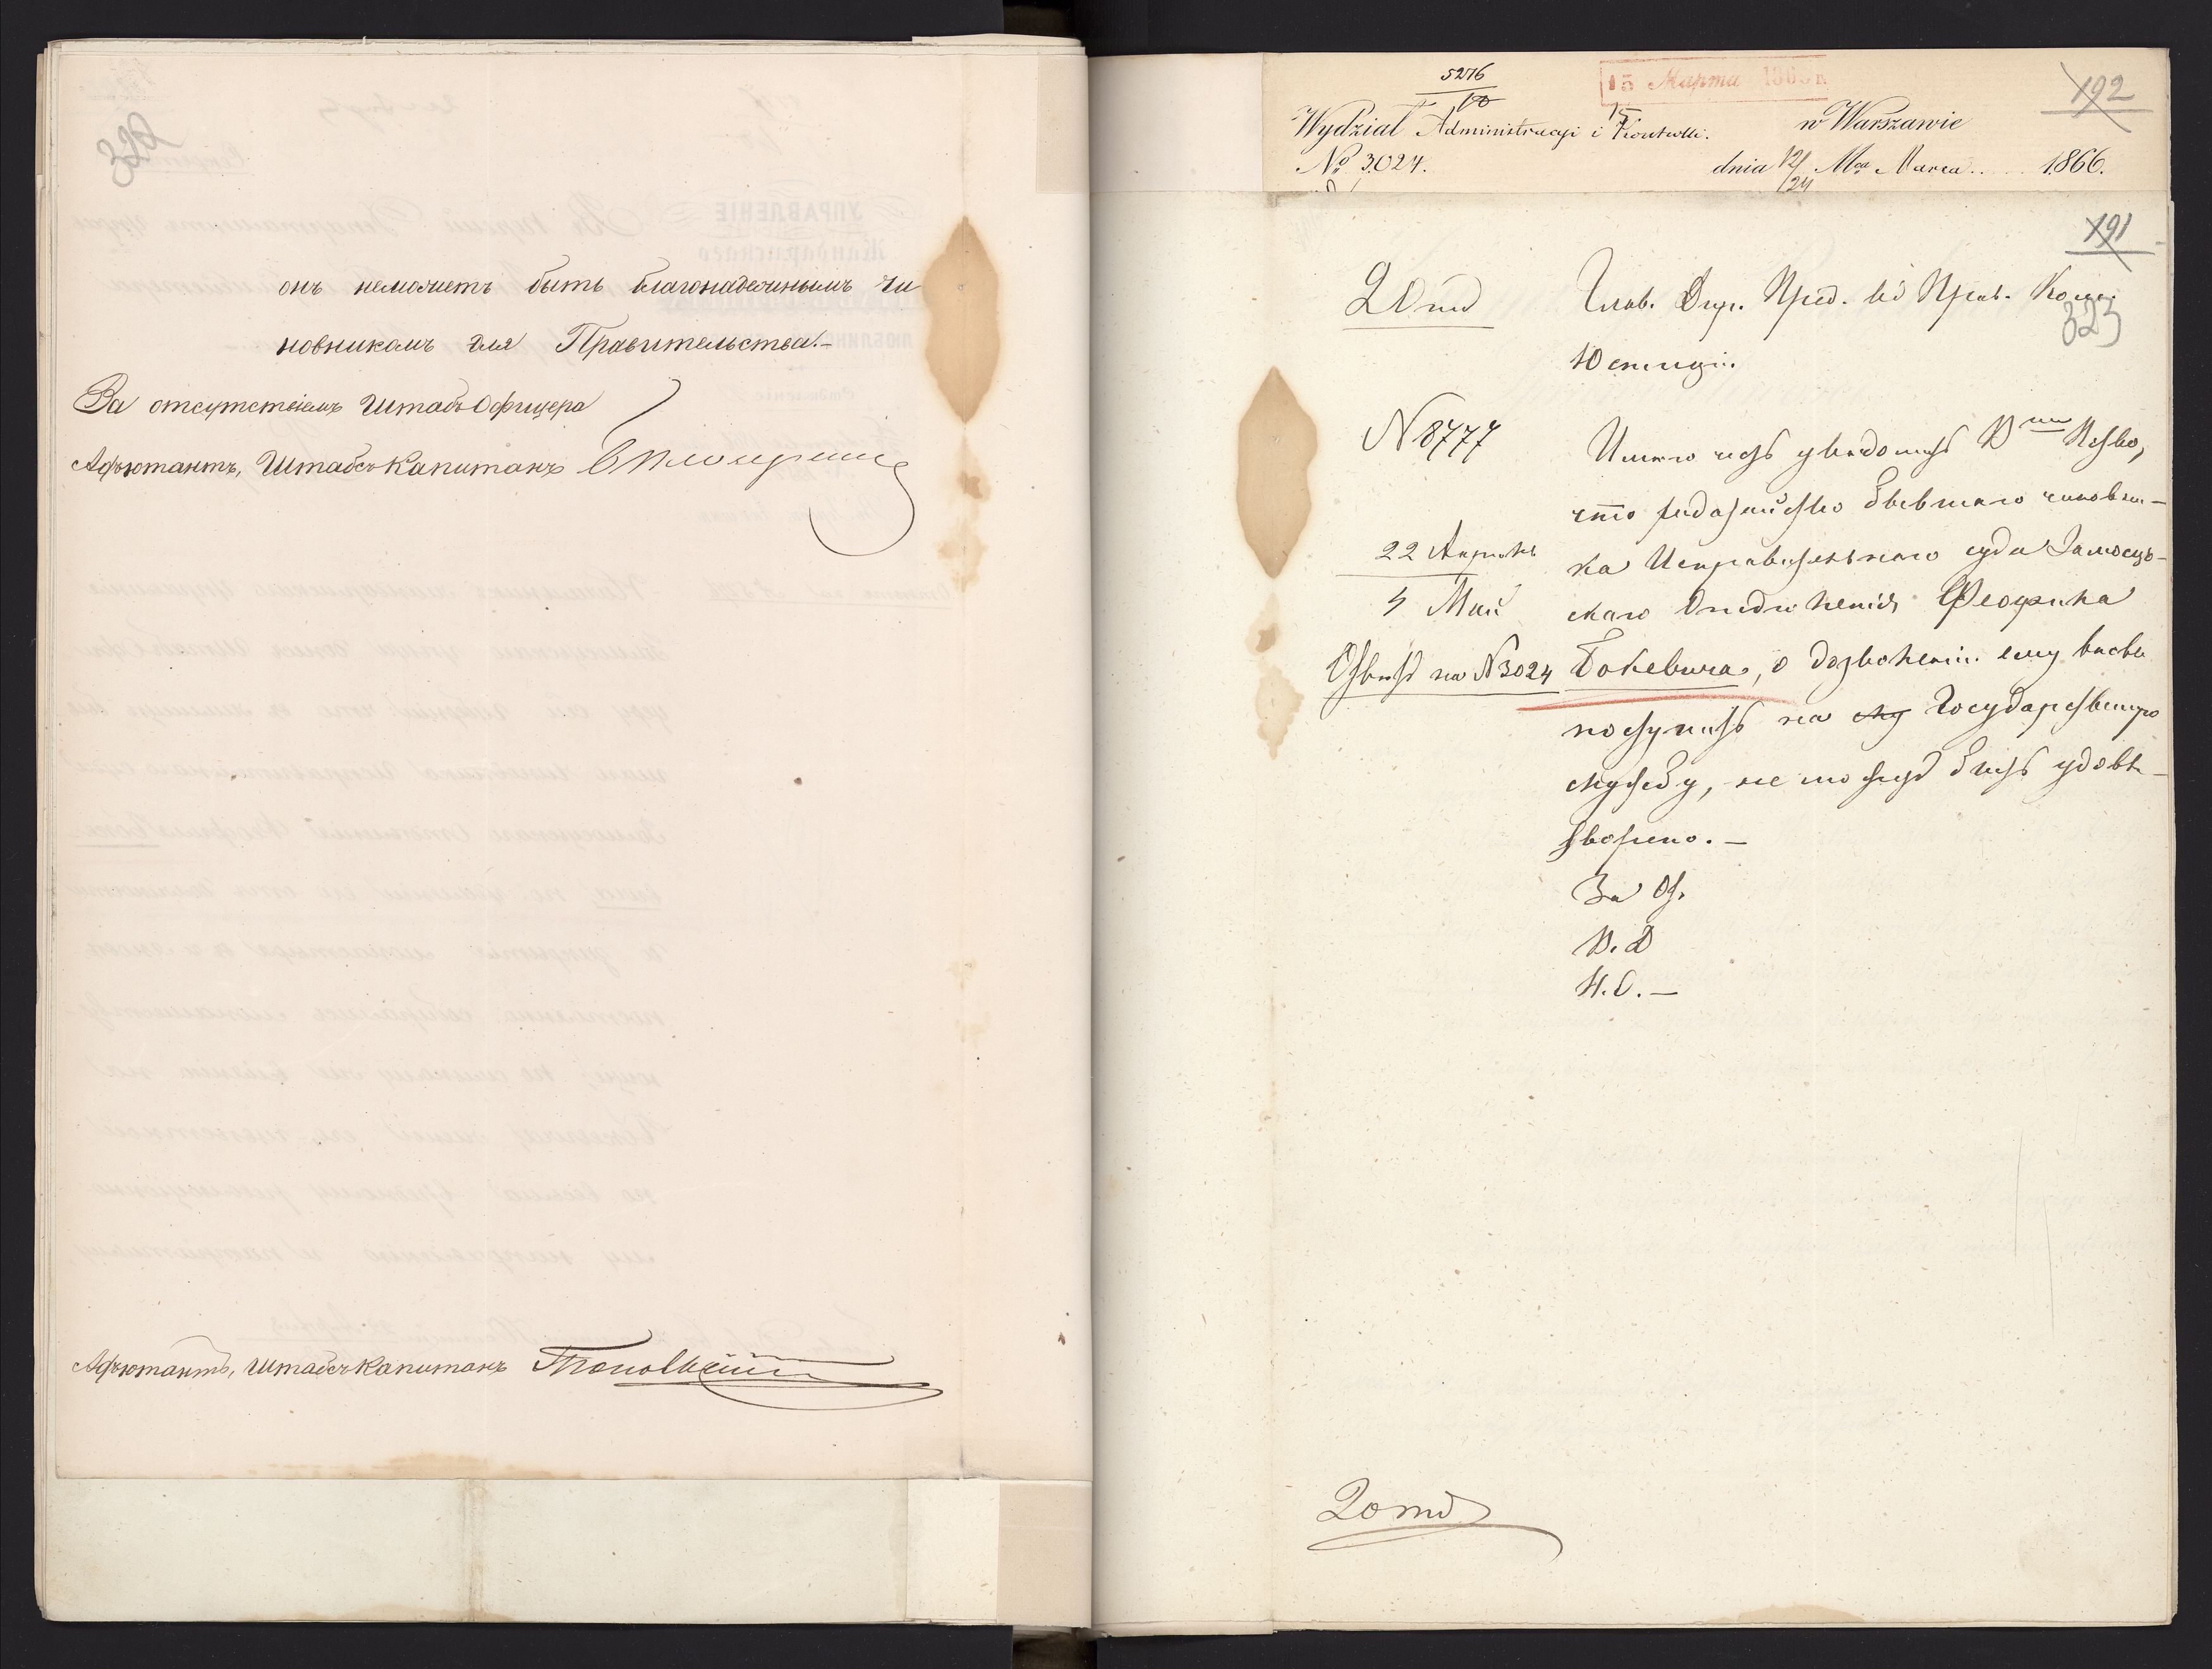 322
онъ неможетъ быть благонадежнымъ чи
новникомъ для Правительства.-
За отсутствіемъ Штабъ-Офицера
Адъютантъ, Штабсъ-Капитанъ
Адъютантъ, Штабсъ-Капитанъ
5276
15 Марта
192
Wydział Administracyi i Kontrolli. w Warszawie
No 3024. dnia 12/24 Marca 1866.
191
2 Отд
Глав. Дир. Пред. въ Прав. Комм.
323
Юстиціи.
N 8777
Имѣю честь увѣдомить В
что ходатайство бывшаго чиновни-
22 Апрѣль
ка Исправительнаго суда Замосць-
4 Май
скаго Отдѣленія Феофила
Отвѣтъ на N 3024
Бокевича, о дозволеніи ему вновь
поступить на слу Государственную
службу, не можетъ быть удовле-
творено. —
За От.
В. Д
Н. О. —
2 отд